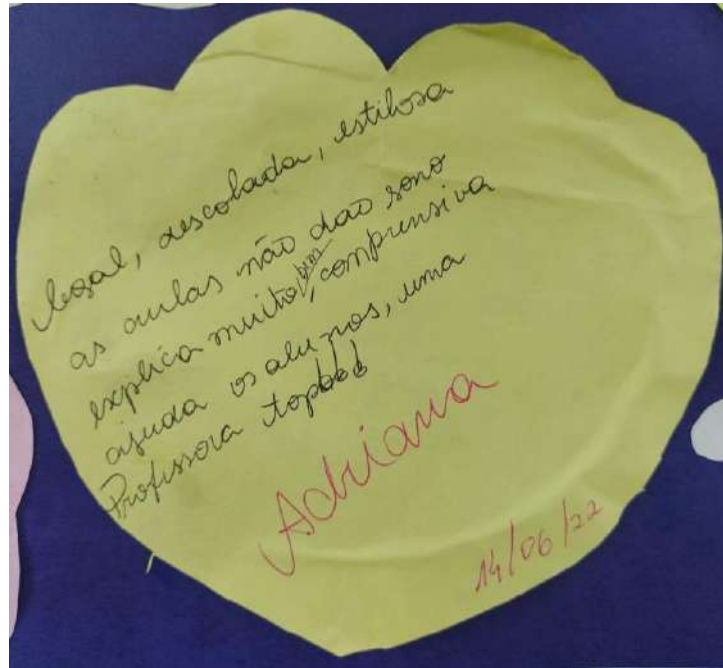 legal, descolada, estilosa
as aulas não dao sono
explica muito bem, comprensiva
ajuda os alunos, uma
Professora top!!!
Adriana
14/06/22